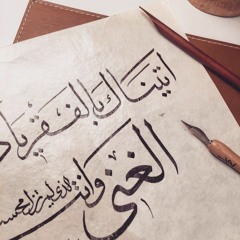 اتيناك بالفقر يا ذ
الغنى وانت الذي لم تزل محسن